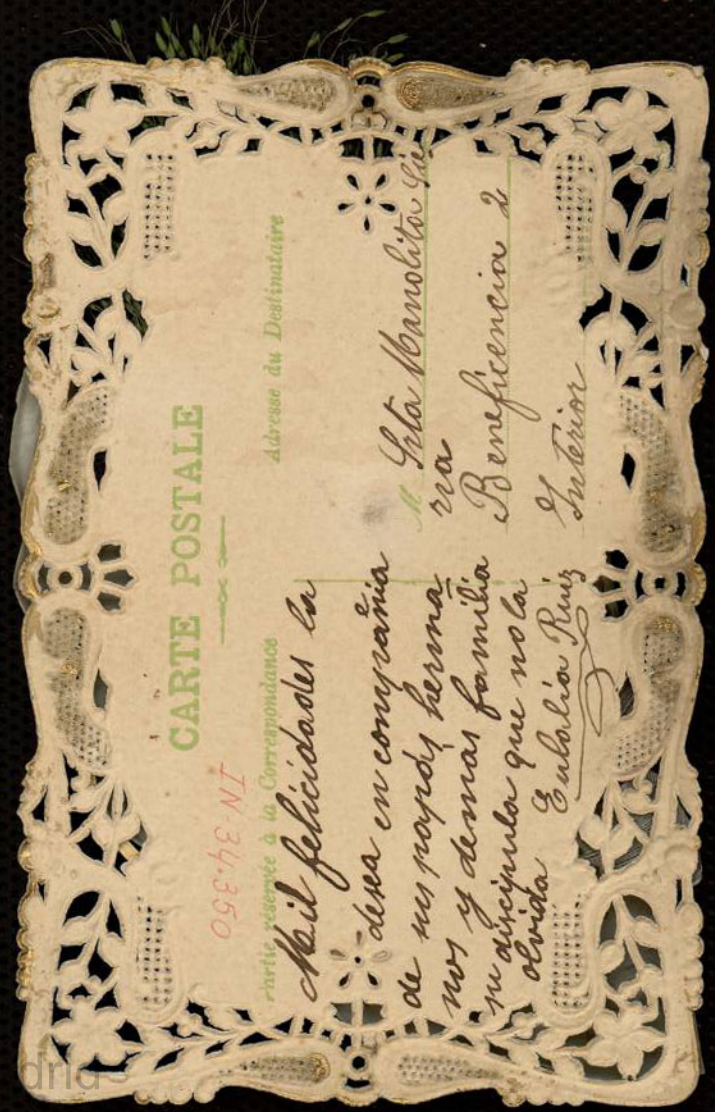 CARTE POSTALE
Partie réservée à la Correspondance
Adresse du Destinataire
IN 34.350
Mil felicidades la
desea en compañia
de sus papás herma
nos y demas familia
su discipula que no la
olvida Eulalia Ruiz
M. Srta Manolita Sie
rra
Beneficencia 2
Interior
drid